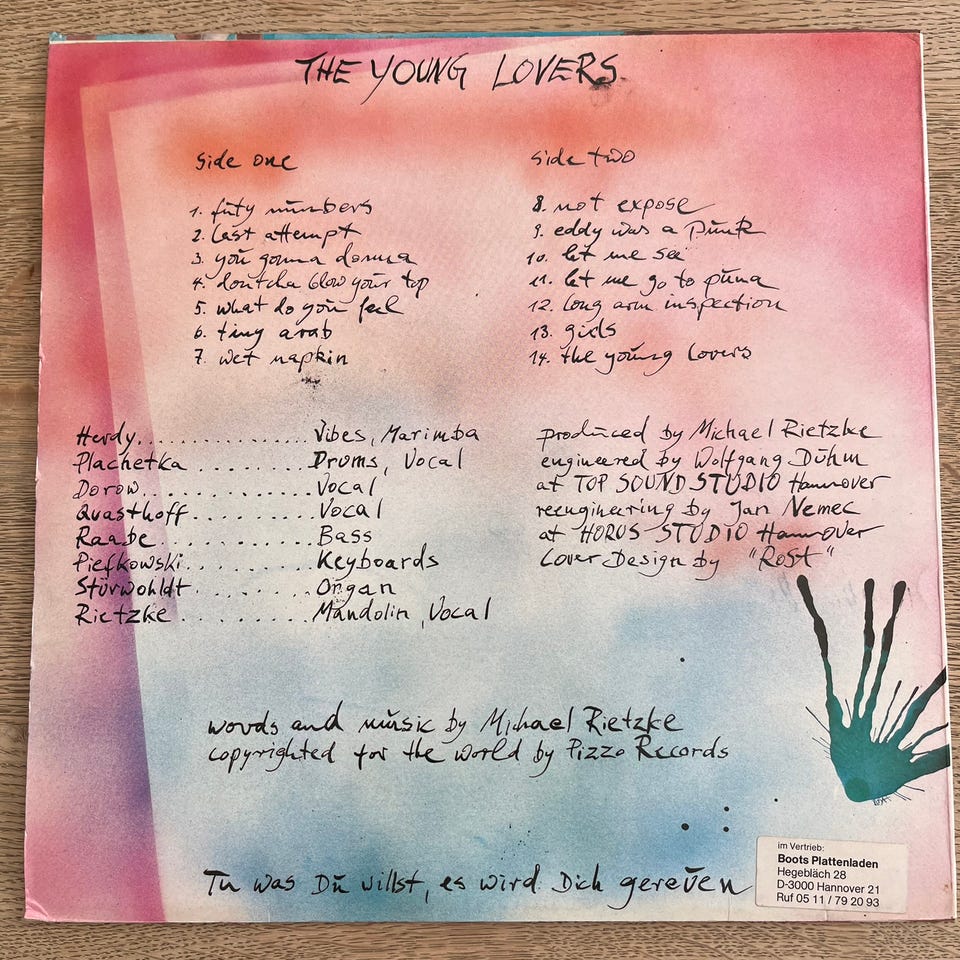 THE YOUNG LOVERS
side one
1. futy numbers
2. last attempt
3. you gonna donna
4. dontcha blow your top
5. what do you feel
6. tiny arab
7. wet napkin
side two
8. not expose
9. eddy was a punk
10. let me see
11. let me go to puna
12. long arm inspection
13. girls
14. the young lovers
Herdy.................Vibes, Marimba
Plachetka............Drums, Vocal
Dorow................Vocal
Quasthoff............Vocal
Raabe................Bass
Piefkowski...........Keyboards
Stürwohldt...........Organ
Rietzke..............Mandolin, Vocal
produced by Michael Rietzke
engineered by Wolfgang Dühm
at TOP SOUND STUDIO Hannover
reengineering by Jan Nemec
at HORUS STUDIO Hannover
Cover Design by "Rost"
Rost
words and music by Michael Rietzke
copyrighted for the world by Pizzo Records
Tu was Du willst, es wird Dich gereuen
im Vertrieb:
Boots Plattenladen
Hegebläch 28
D-3000 Hannover 21
Ruf 05 11 / 79 20 93